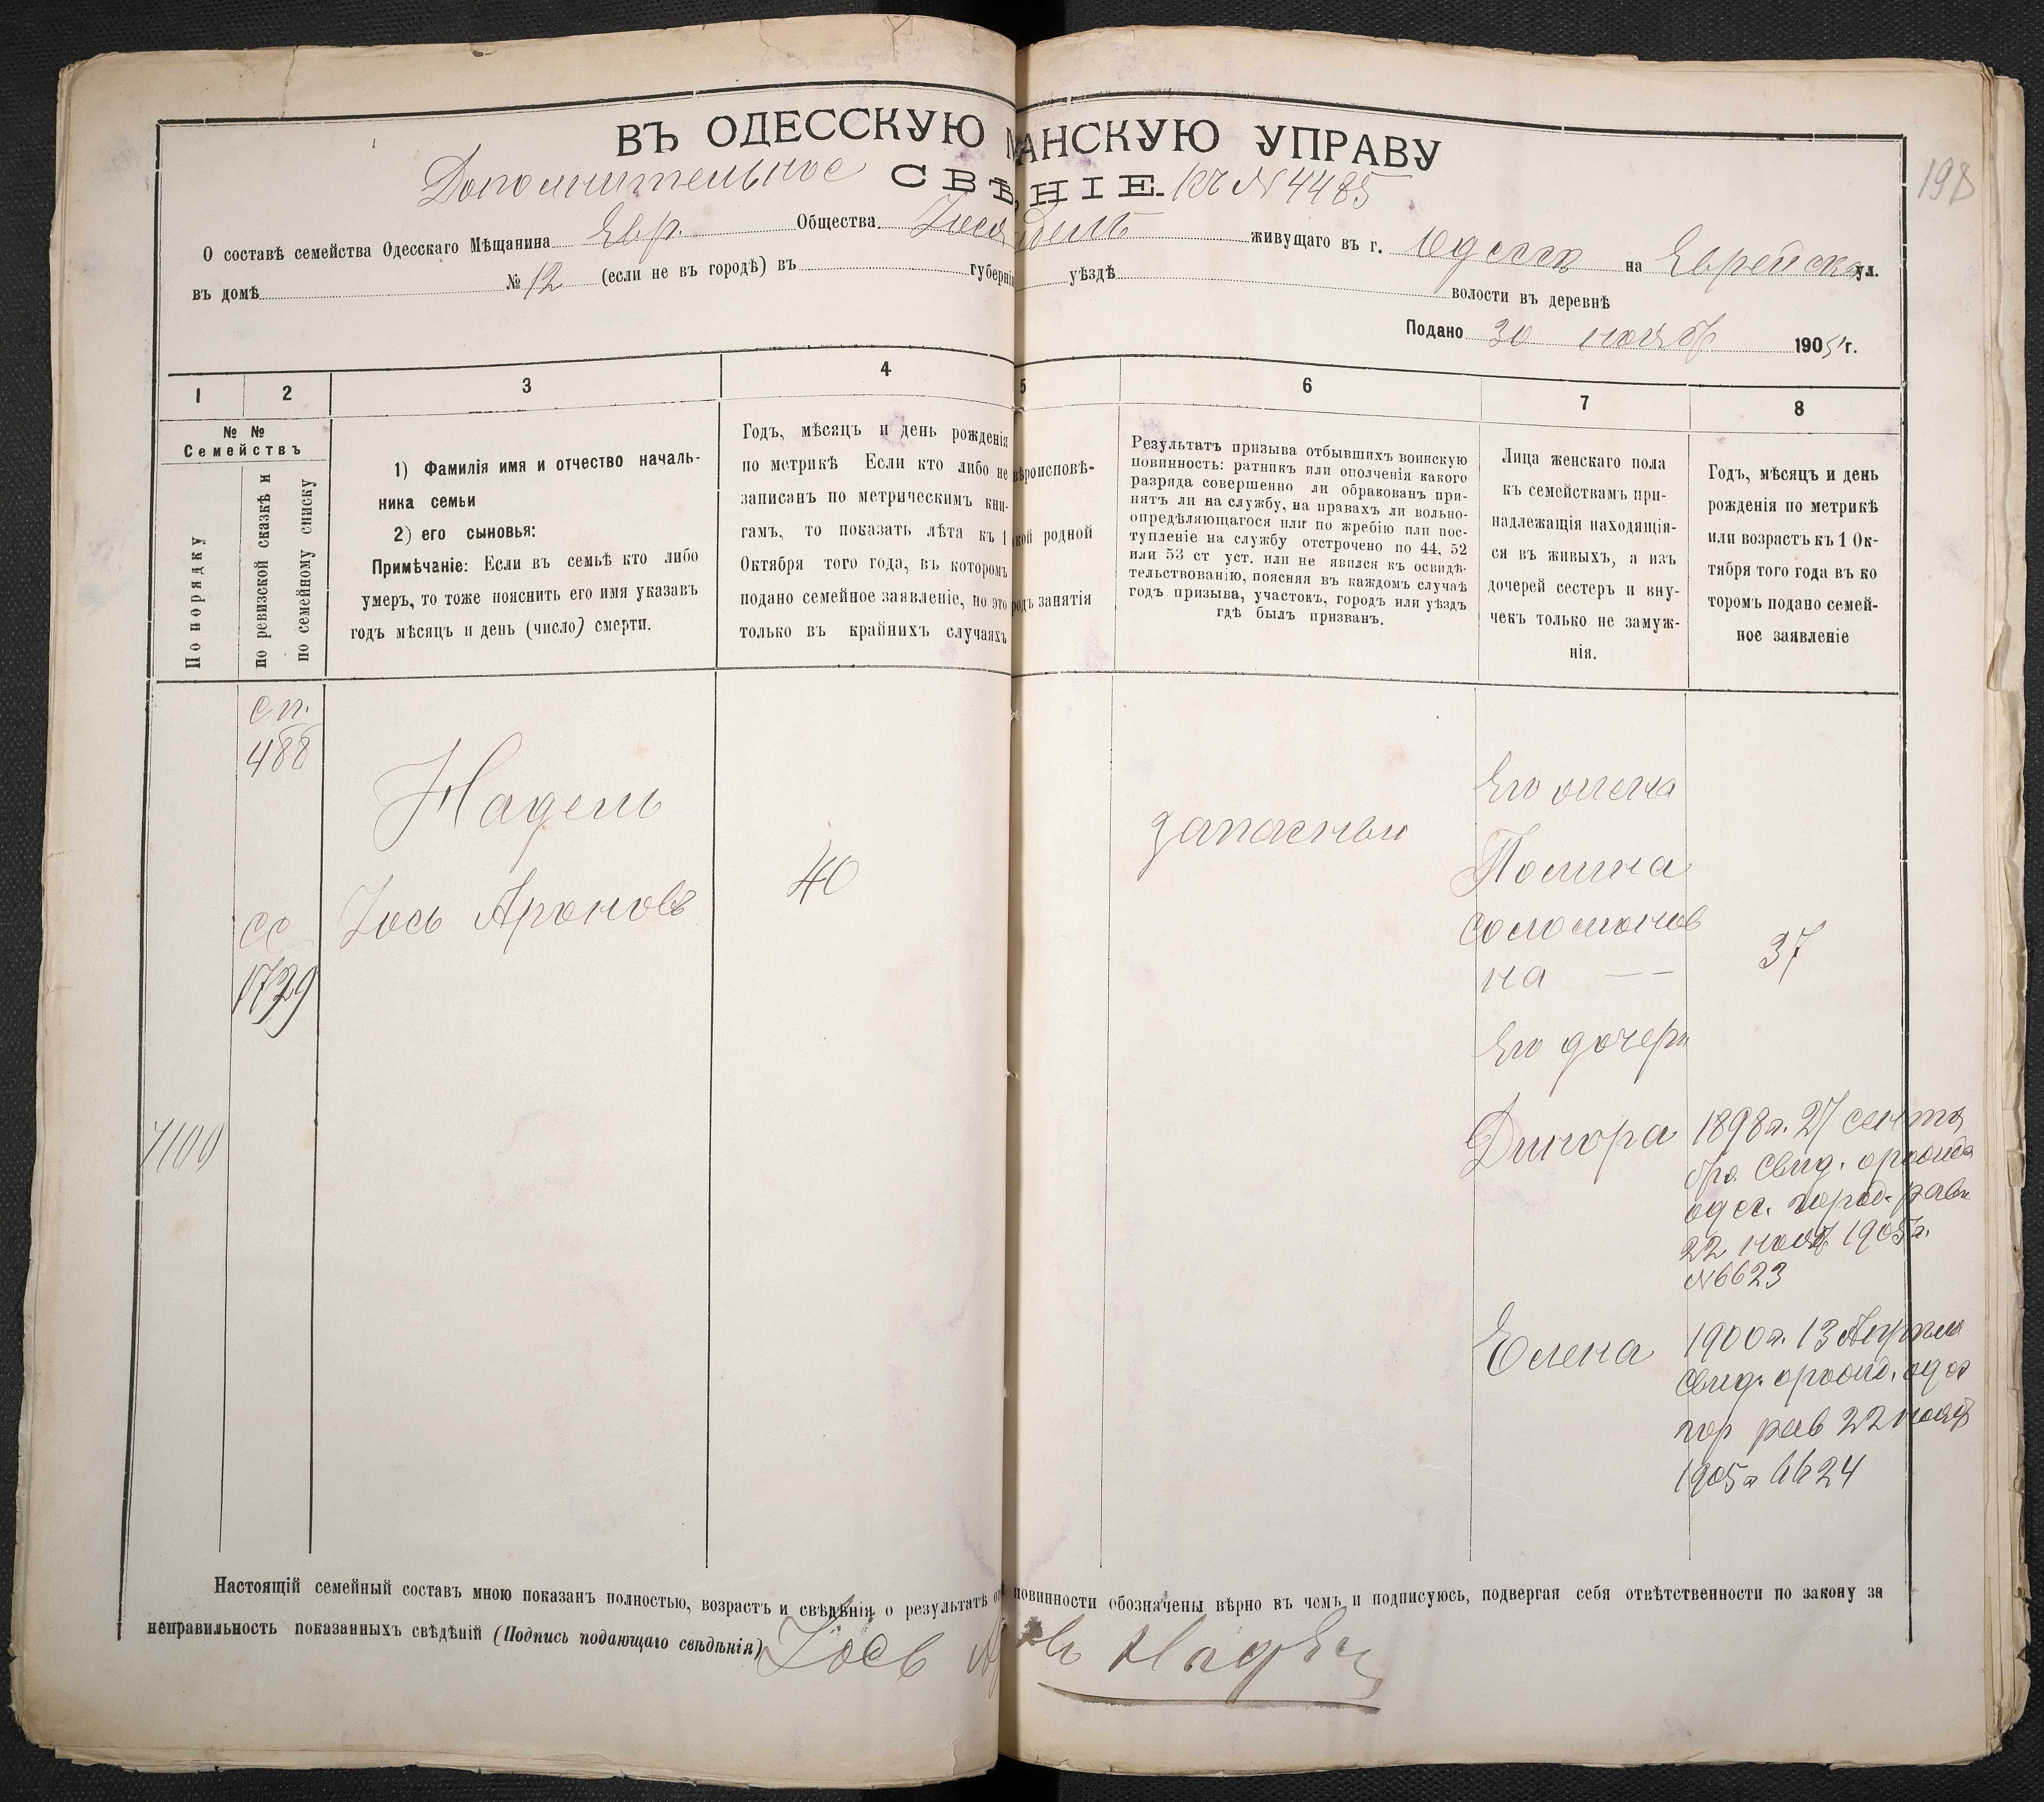 ВЪ ОДЕССКУЮ АНСКУЮ УПРАВУ
Дополнительное СВѢ НІЕ. къ №4485
198
О составѣ семейства Одесскаго Мѣщанина Евр. Общества живущаго въ г. Одессѣ на Еврейской ул.
въ домѣ № 12 (если не въ городѣ) въ губерніи уѣздѣ волости въ деревнѣ
Подано 30 нояб. 1905 г.
1 2 3 4 5 6 7 8
№ №
Семействъ
По порядку
по ревизской сказкѣ и
по семейному списку
1) Фамилія имя и отчество началь-
ника семьи
2) его сыновья:
Примѣчаніе: Если въ семьѣ кто либо
умеръ, то тоже пояснить его имя указавъ
годъ мѣсяцъ и день (число) смерти.
Годъ, мѣсяцъ и день рожденія
по метрикѣ Если кто либо не
записанъ по метрическимъ кни-
гамъ, то показать лѣта къ 1
Октября того года, въ которомъ
подано семейное заявленіе, но это
только въ крайнихъ случаяхъ
вѣроисповѣ-
кой родной
родъ занятія
Результатъ призыва отбывшихъ воинскую
повинность: ратникъ или ополченія какого
разряда совершенно ли обракованъ при-
нятъ ли на службу, на правахъ ли вольно-
опредѣляющагося или по жребію или пос-
тупленіе на службу отстрочено по 44, 52
или 53 ст уст. или не явился къ освидѣ-
тельствованію, поясняя въ каждомъ случаѣ
годъ призыва, участокъ, городъ или уѣздъ
гдѣ былъ призванъ.
Лица женскаго пола
къ семействамъ при-
надлежащія находящія-
ся въ живыхъ, а изъ
дочерей сестеръ и вну-
чекъ только не замуж-
нія.
Годъ, мѣсяцъ и день
рожденія по метрикѣ
или возрастъ къ 1 Ок-
тября того года въ ко
торомъ подано семей-
ное заявленіе
сп.
488
сс
1729
1100
Надель
Іось Ароновъ
40
запасный
Его жена
Полина
Соломонов
на
37
Его дочери
Динора
1898г. 27 сентя
бря свид.
одес. город. равв
22 нояб. 1905г.
№6623
Елена
1900г. 13 Апреля
свид. одес
гор рав 22 нояб
1905г 6624
Настоящій семейный составъ мною показанъ полностью, возрастъ и свѣдѣнія о результатѣ от повинности обозначены вѣрно въ чемъ и подписуюсь, подвергая себя отвѣтственности по закону за
неправильность показанныхъ свѣдѣній (Подпись подающаго свѣдѣнія) Іось Ар овъ Надель